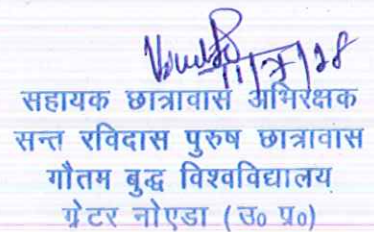 सहायक छात्रावास अभिरक्षक
सन्त रविदास पुरुष छात्रावास
गौतम बुद्ध विश्वविद्यालय
ग्रेटर नोएडा (उ० प्र०)